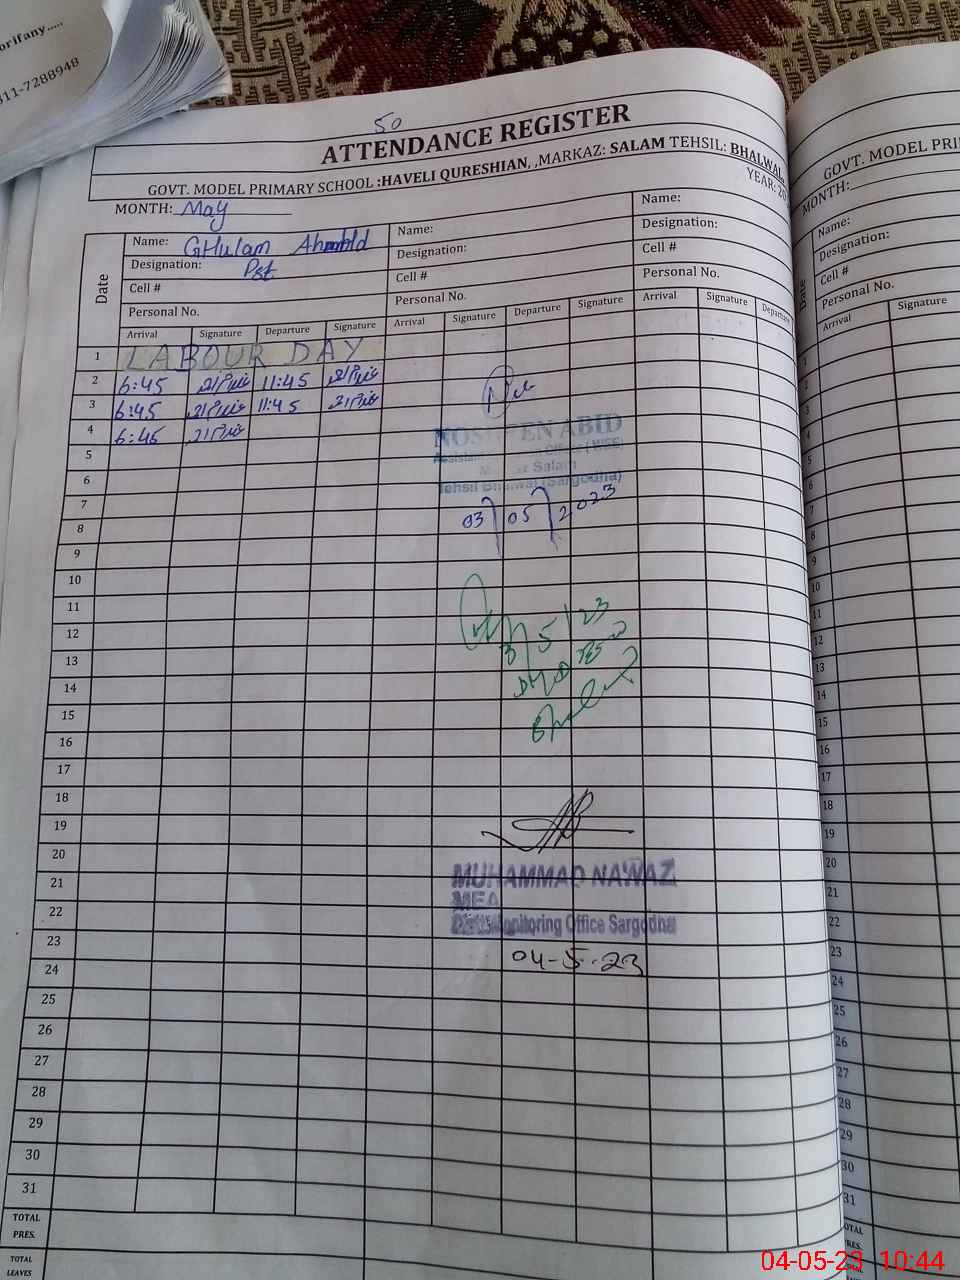 orifany.....
311-7288948
50
ATTENDANCE REGISTER
GOVT. MODEL PRIMARY SCHOOL :HAVELI QURESHIAN, ,MARKAZ: SALAM TEHSIL: BHALWAL
YEAR: 20
MONTH: May
Date
Name: GHulam
Designation: Pst
Cell #
Personal No.
Name:
Designation:
Cell #
Personal No.
Name:
Designation:
Cell #
Personal No.
Arrival Signature Departure Signature Arrival Signature Departure Signature Arrival Signature Departure
1 LABOUR DAY
2 6:45 11:45
3 6:45 11:45
4 6:45
5
6
7
8
9
10
11
12
13
14
15
16
17
18
19
20
21
22
23
24
25
26
27
28
29
30
31
TOTAL
PRES.
TOTAL
LEAVES
ABID
Salam
Tehsil (Sargodha)
03/05/2023
3/5/23
MUHAMMAD NAWAZ
MEA
Monitoring Office Sargodha
04-5-23
GOVT. MODEL PRI
MONTH:
Date
Name:
Designation:
Cell #
Personal No.
Arrival Signature
1
2
3
4
5
6
7
8
9
10
11
12
13
14
15
16
17
18
19
20
21
22
23
24
25
26
27
28
29
30
31
OTAL
RES.
OTAL
04-05-23 10:44